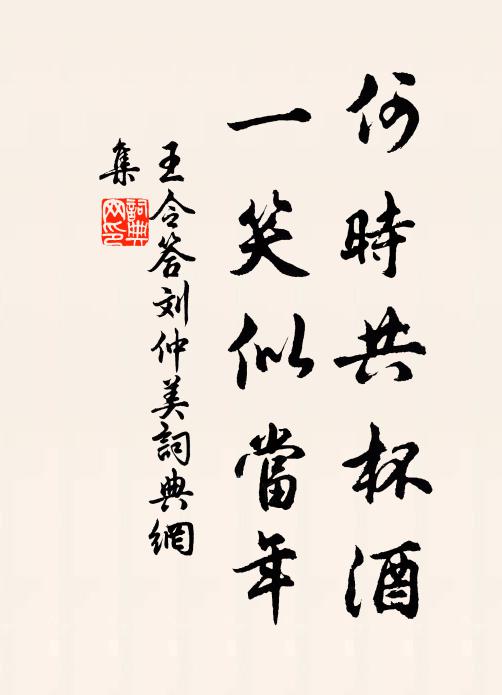 何時共杯酒
一笑似當年
王令答刘仲美詞典網
集
詞典
网印